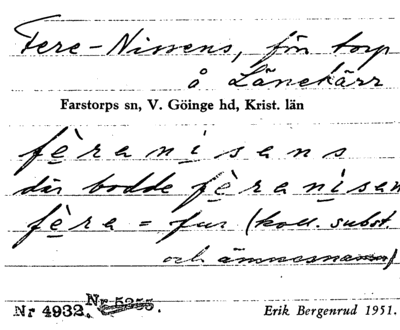 Fere-Nissens, förr torp
å Länekärr
Farstorps sn, V. Göinge hd, Krist. län
fèranisans
där bodde fèranisan
fèra = fur (koll. subst.
och ämnesnamn)
Nr 4932. Nr 5255.
Erik Bergenrud 1951.